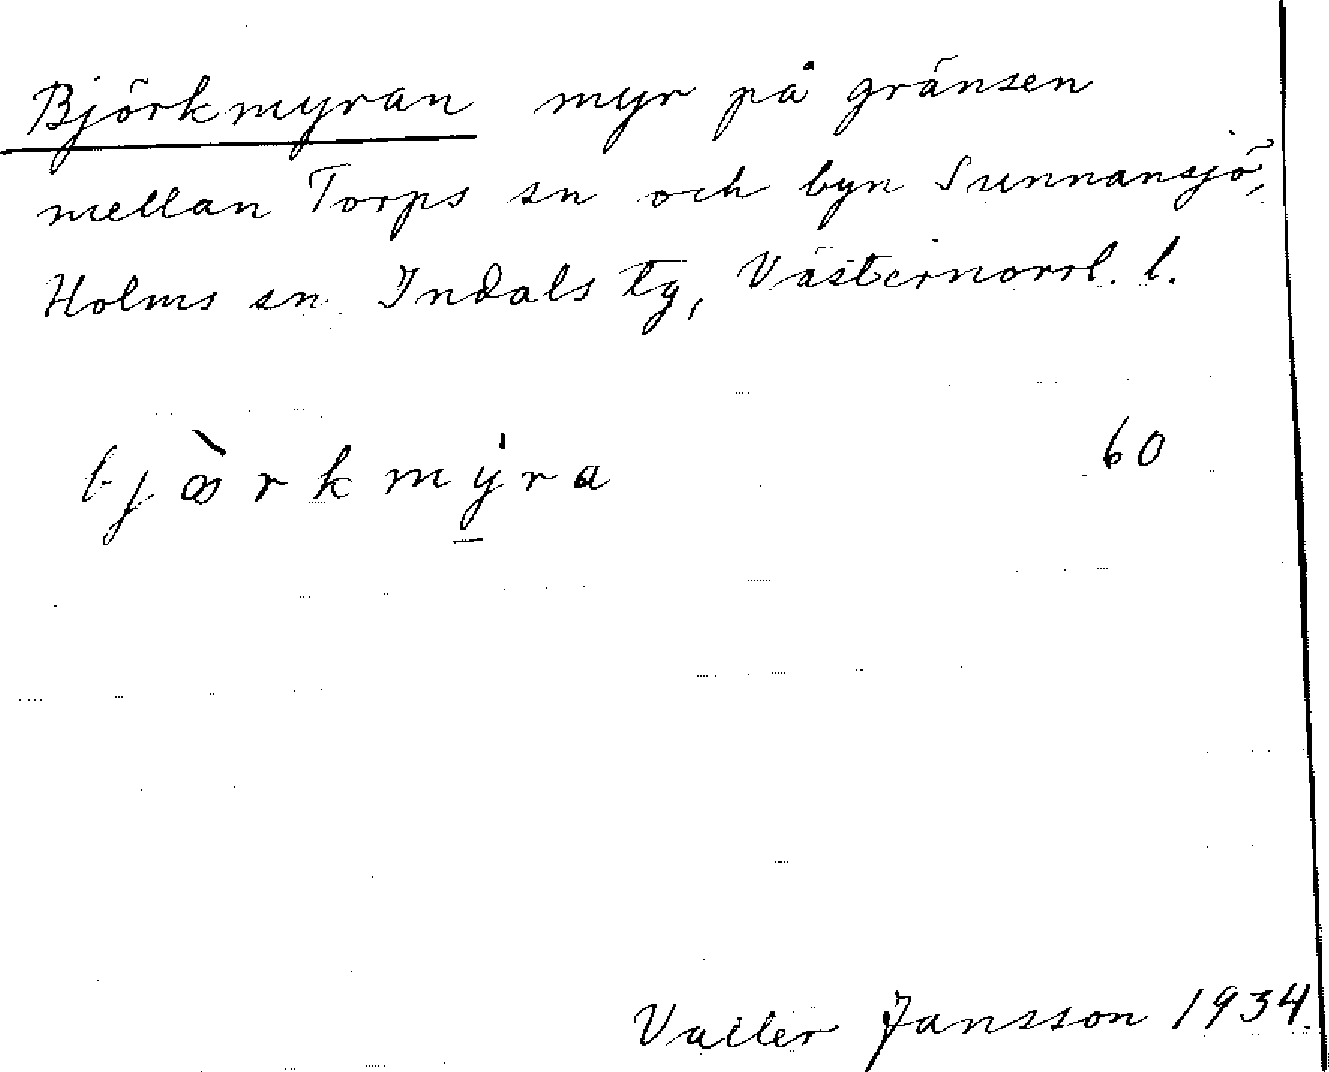 Björkmyran myr på gränsen
mellan Torps sn och byn Sunnansjö,
Holms sn Indals tg, Västernorrl. l.
bjœ̀rkmẏ̱ra 60
Valter Jansson 1934.